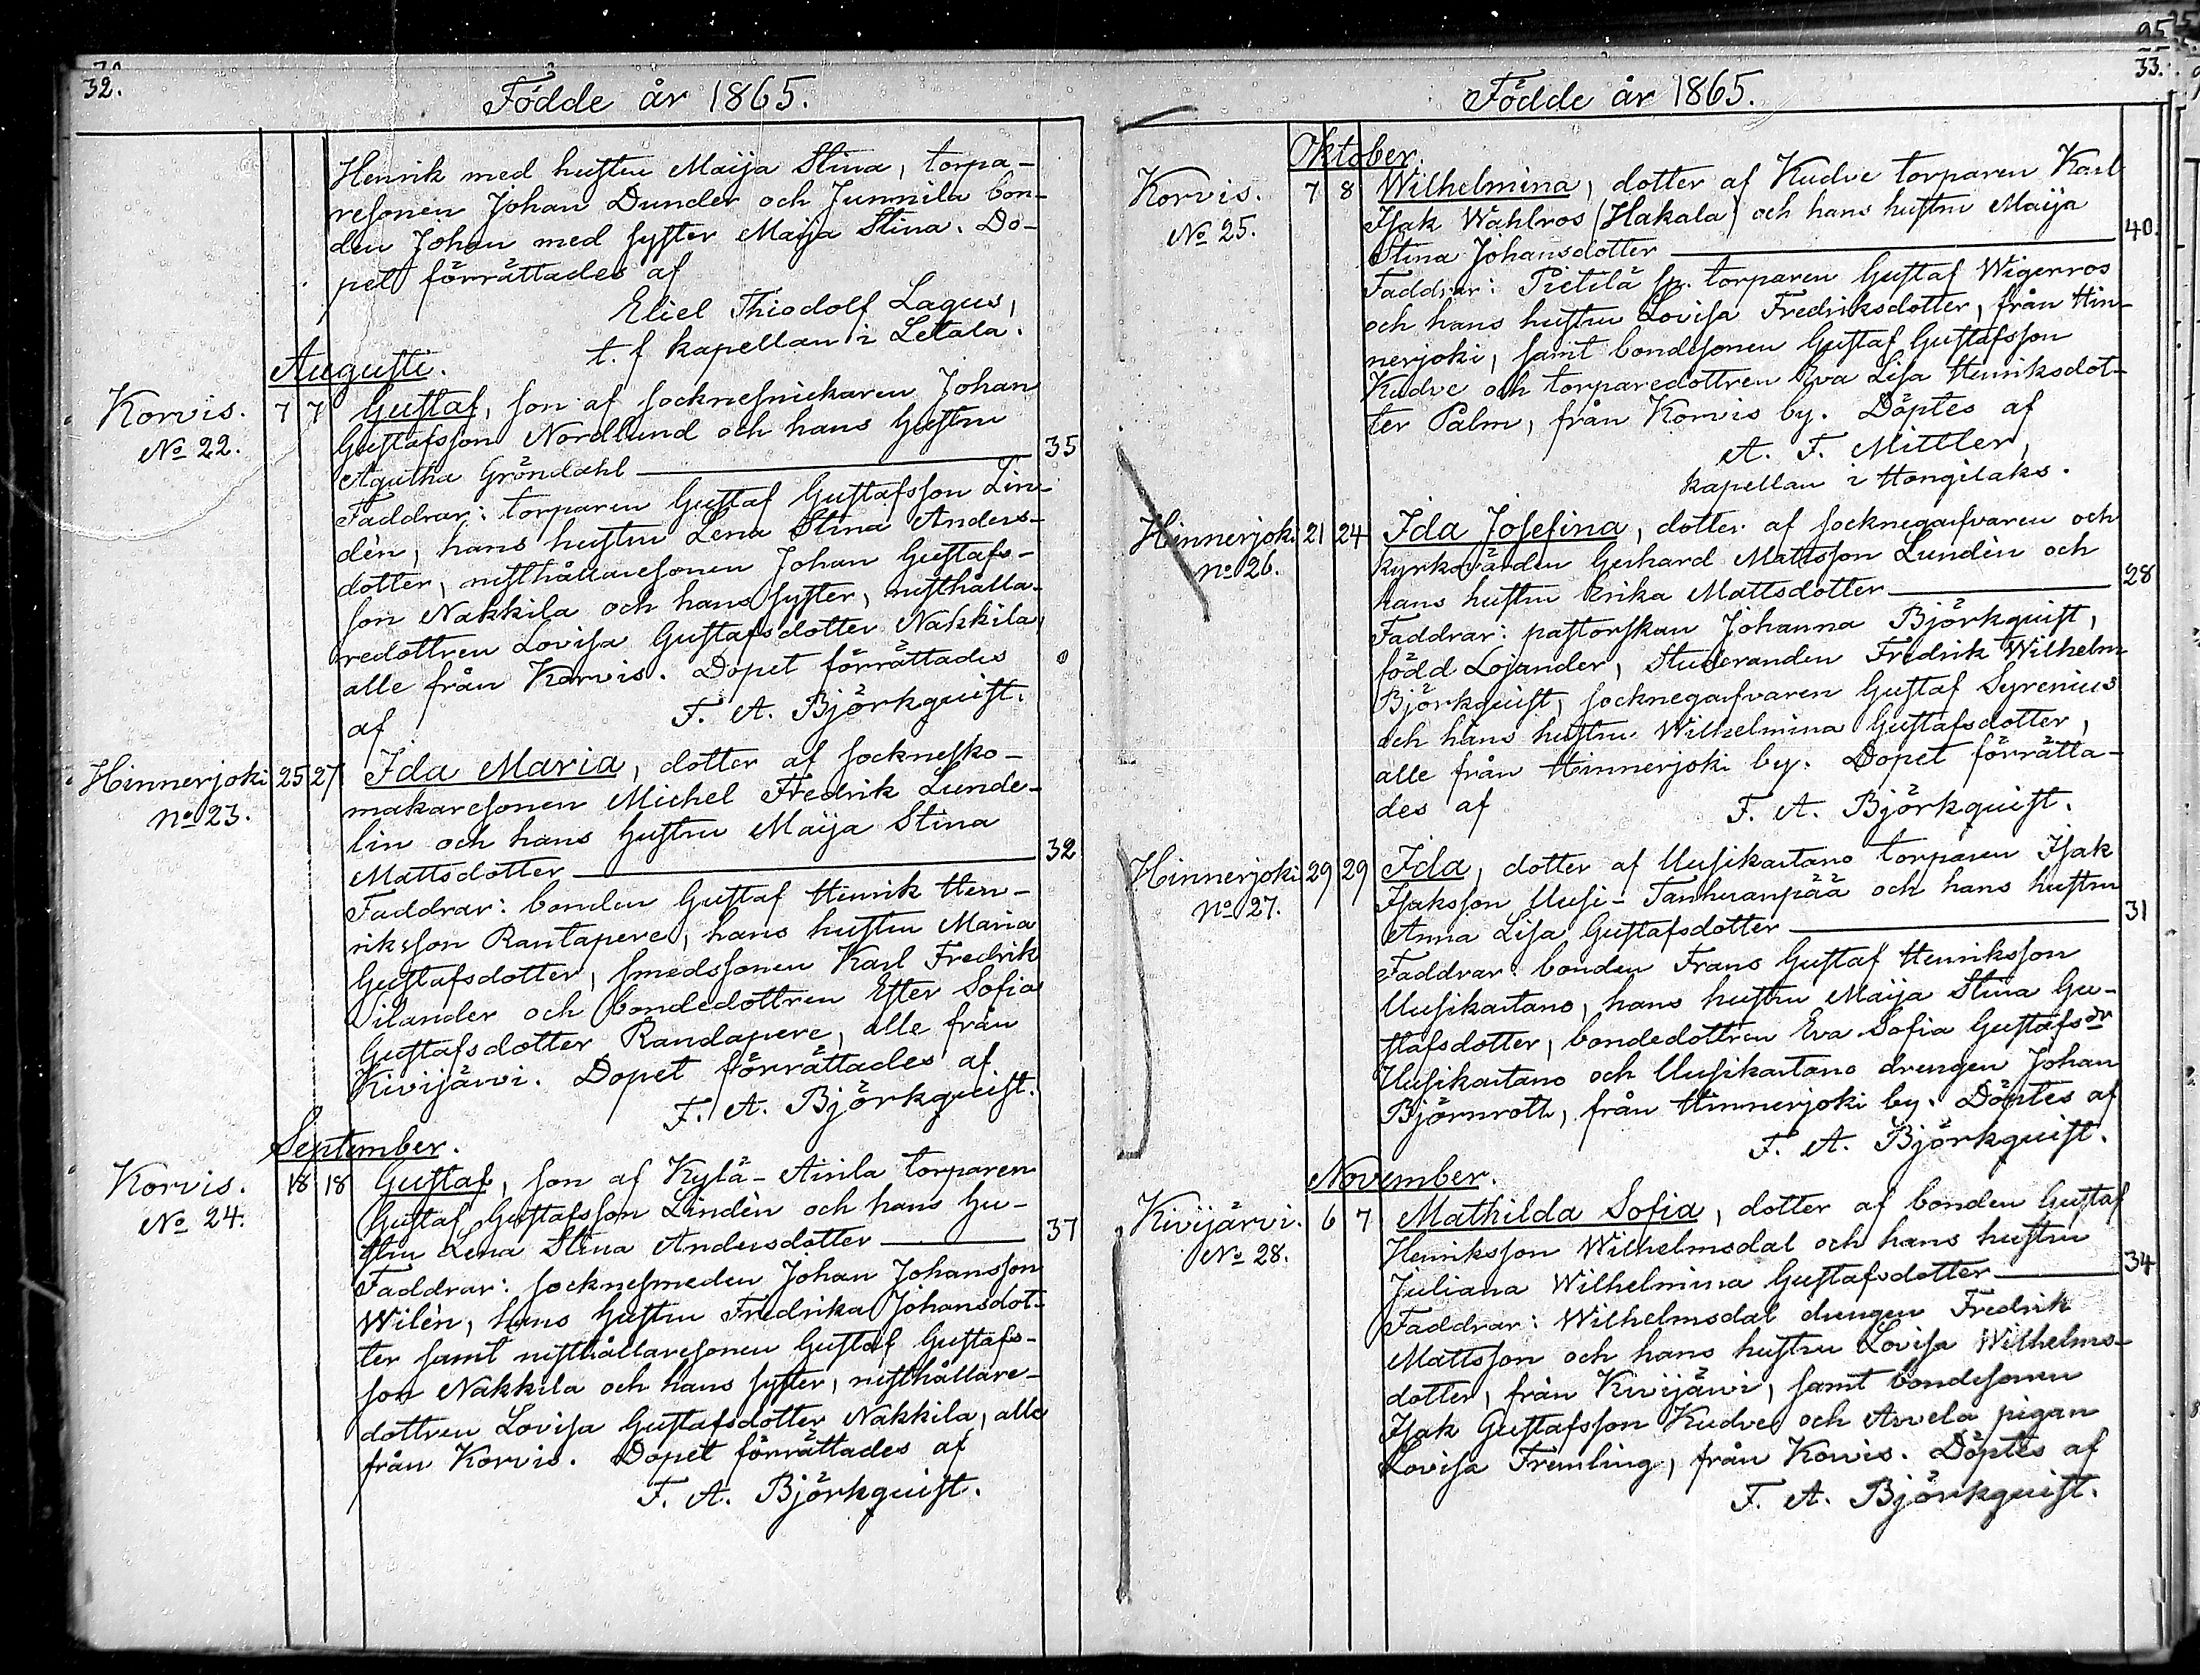 32.
Födde år 1865.
Henrik med hustru Maija Stina, torpa-
resonen Johan Dunder och Junnila bon-
den Johan med syster Maija Stina. Do-
pet förrättades af
Eliel Thiodolf Lagus,
t. f kapellan i Letala.
Augusti.
Korvis. 7 7 Gustaf, son af socknesnickaren Johan
No 22. Gustafsson Nordlund och hans hustru
Agatha Gröndahl 35
Faddrar: torparen Gustaf Gustafsson Lin-
dèn, hans hustru Lena Stina Anders-
dotter, rusthållaresonen Johan Gustafs-
son Nakkila och hans syster, rusthålla-
redottren Lovisa Gustafsdotter Nakkila,
alle från Korvis. Dopet förrättades
af F. A. Björkquist.
Hinnerjoki 25 27 Ida Maria, dotter af socknesko-
No 23. makaresonen Michel Fredrik Lunde-
lin och hans hustru Maija Stina
Mattsdotter 32
Faddrar: bonden Gustaf Henrik Hen-
riksson Rantapere, hans hustru Maria
Gustafsdotter, smedssonen Karl Fredrik
Silander och bondedottren Ester Sofia
Gustafsdotter Randapere, alle från
Kivijärvi. Dopet förrättades af
F. A. Björkquist.
September.
Korvis. 18 18 Gustaf, son af Kylä-Anila torparen
No 24. Gustaf Gustafsson Lindèn och hans hu-
stru Lena Stina Andersdotter 37
Faddrar: socknesmeden Johan Johansson
Wilèn, hans hustru Fredrika Johansdot-
ter samt rusthållaresonen Gustaf Gustafs-
son Nakkila och hans syster, rusthållare-
dottren Lovisa Gustafsdotter Nakkila, alle
från Korvis. Dopet förrättades af
F. A. Björkquist.
33.
Födde år 1865.
Oktober.
Korvis. 7 8 Wilhelmina, dotter af Kudve torparen Karl
No 25. Isak Wahlros (Hakala) och hans hustru Maija
Stina Johansdotter 40.
Faddrar: Pietilä sp. torparen Gustaf Wigerros
och hans hustru Lovisa Fredriksdotter, från Hin-
nerjoki, samt bondesonen Gustaf Gustafsson
Kudve och torparedottren Eva Lisa Henriksdot-
ter Palm, från Korvis by. Döptes af
A. F. Mittler,
kapellan i Hongilaks.
Hinnerjoki 21 24 Ida Josefina, dotter af socknegarfvaren och
No 26. kyrkovärden Gerhard Mattsson Lundèn och
hans hustru Erika Mattsdotter 28
Faddrar: pastorskan Johanna Björkquist,
född Lojander, Studeranden Fredrik Wilhelm
Björkquist, socknegarfvaren Gustaf Syrenius
och hans hustru Wilhelmina Gustafsdotter,
alle från Hinnerjoki by. Dopet förrätta-
des af F. A. Björkquist.
Hinnerjoki 29 29 Ida, dotter af Uusikartano torparen Isak
No 27. Isaksson Uusi-Tanhuanpää och hans hustru
Anna Lisa Gustafsdotter 31
Faddrar: bonden Frans Gustaf Henriksson
Uusikartano, hans hustru Maija Stina Gu-
stafsdotter, bondedottren Eva Sofia Gustafsdr
Uusikartano och Uusikartano drengen Johan
Björnroth, från Hinnerjoki by. Döptes af
F. A. Björkquist.
November.
Kivijärvi. 6 7 Mathilda Sofia, dotter af bonden Gustaf
No 28. Henriksson Wilhelmsdal och hans hustru
Juliana Wilhelmina Gustafsdotter 34
Faddrar: Wilhelmsdal drengen Fredrik
Mattsson och hans hustru Lovisa Wilhelms-
dotter, från Kivijärvi, samt bondesonen
Isak Gustafsson Kudve och Arvela pigan
Lovisa Fremling, från Korvis. Döptes af
F. A. Björkquist.